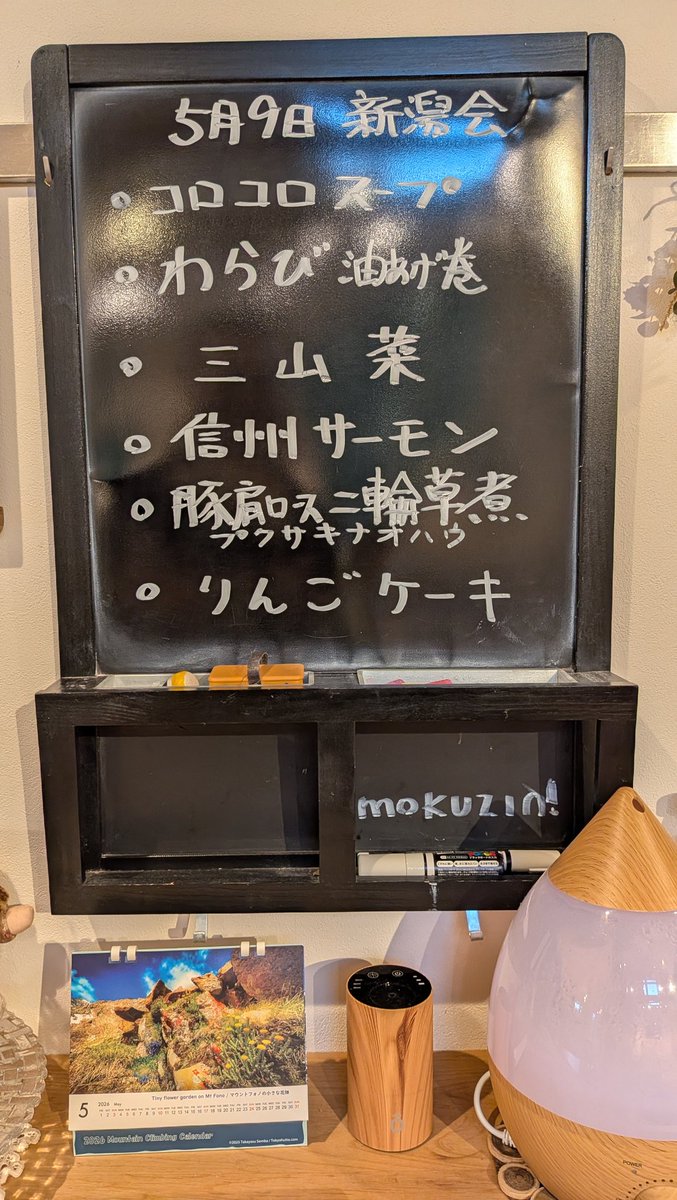 5月9日 新潟会
○ コロコロスープ
○ わらび 油あげ巻
○ 三山菜
○ 信州サーモン
○ 豚肩ロース二輪草煮
プクサキナオハウ
○ りんごケーキ
mokuzin!
Tiny flower garden on Mt Fono / マウントフォノの小さな花陣
5 2026 May
2026 Mountain Climbing Calendar
POWER